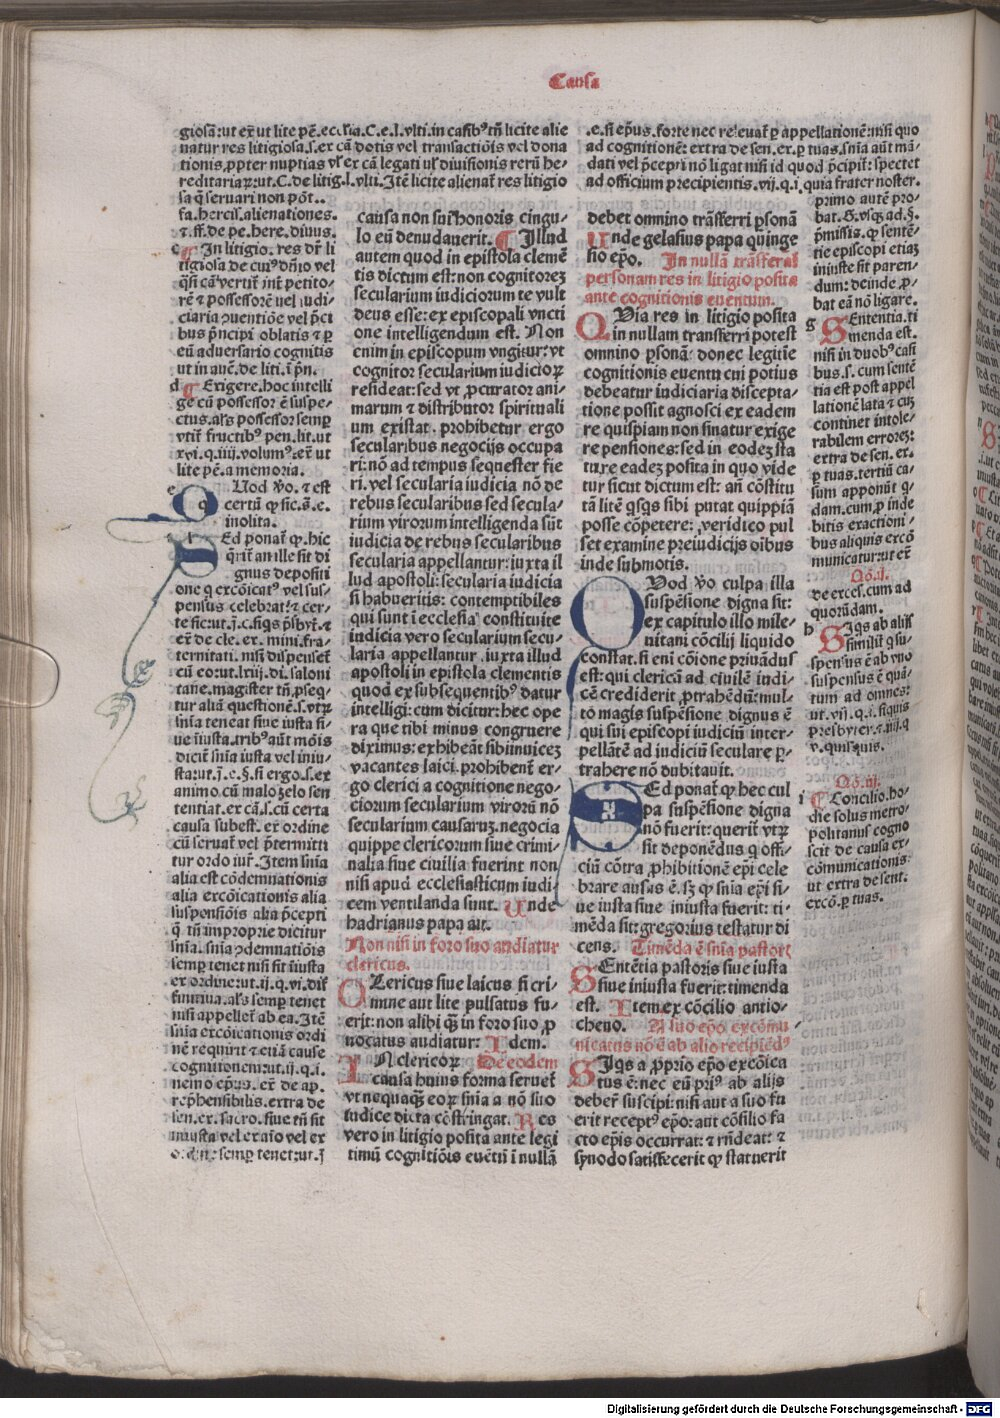 Causa
giosā:ut eꝶ ut lite pē.eccl̄ia.C.e.l.vlti.in casibꝰ tn̄ licite alie
natur res litigiosa.s.ex cā dotis vel transactiōis vel dona
tionis ꝓpter nuptias vl̓ ex cā legati ul̓ diuisionis rerū he⸗
reditariaꝝ:ut.C.de litig.l.vlti.Itē licite alienat̄ res litigio
sa q̄ seruari non pōt..
fa.hercis.alienationes.
⁊.ff.de pe.here.diuus.
c In litigio. res dr̄ li
tigiosa de cuiꝰ dn̄io vel
q̄si cā vertit̄ int̓ petito⸗
rē ⁊ possessorē uel iudi⸗
ciaria ꝯuentiōe vel p̄ci
bus p̄ncipi oblatis ⁊ ꝑ
eū aduersario cognitis
ut in auc̄.de liti.i p̄n.
d Exigere.hoc intelli
ge cū possessor ē suspe⸗
ctus.al̓s possessor semꝑ
vtit̄ fructibꝰ pen.lit.ut
xvi.q.iiij.volumꝰ.eꝶ ut
lite pē.a memoria.
e QUod v̓o.⁊ est
certū ꝙ sic.s.e.
inolita.
SEd ponat̄ ꝙ.hic
q̄rit̄ an ille sit di
gnus depositi
one q excōicat̄ vel sus⸗
pensus celebrat:⁊ cer⸗
te sic:ut.j̄.c.siqs p̄sbyt̄.⁊
eꝶ de cle.ex.mini.fra⸗
ternitati.nisi dispenset̄
cū eo:ut.lxiij.di.saloni
tane.magister tn̄.ꝓseq⸗
tur aliā questionē.s.vtꝝ
sn̄ia teneat siue iusta si⸗
ue iiusta.tribꝰ aūt mōis
dicit̄ sn̄ia iusta vel iniu⸗
sta:ut.j̄.e.§.si ergo.s.ex
animo cū malo zelo sen
tentiat.ex cā.s.cū certa
causa subest. ex ordine
cū seruat̄ vel p̄termitti
tur ordo iur̄.Item sn̄ia
alia est cōdemnationis
alia excōicationis alia
suspensiōis alia p̄cepti
q̄ tn̄ improprie dicitur
sn̄ia.sn̄ia ꝯdemnatiōis
semꝑ tenet nisi sit iiusta
ex ordine:ut.ij.q.vi.dif
finitiua.al̓s semꝑ tenet
nisi appellet̄ ab ea.Itē
sn̄ia excōicationis ordi
nē requirit ⁊ etiā cause
cognitionem:ut.ij.q.i.
nemo ep̄us.eꝶ de ap.
rep̄hensibilis.extra de
sen.ex.sacro.siue tn̄ sit
iniusta vel ex aio vel ex
ordine:semꝑ tenet:ut.j̄
causa non sui honoris cingu⸗
lo eū denudauerit. Illud
autem quod in epistola clemē
tis dictum est:non cognitoreꝫ
secularium iudiciorum te vult
deus esse:ex episcopali vncti
one intelligendum est. Non
enim in episcopum vngitur:vt
cognitor secularium iudicioꝝ
resideat:sed vt ꝓcurator ani⸗
marum ⁊ distributor spirituali
um existat. prohibetur ergo
secularibus negocijs occupa
ri:nō ad tempus sequester fie
ri.vel secularia iudicia nō de
rebus secularibus sed secula⸗
rium virorum intelligenda sūt
iudicia de rebus secularibus
secularia appellantur:iuxta il
lud apostoli:secularia iudicia
si habueritis: contemptibiles
qui sunt i ecclesia constituite
iudicia vero secularium secu⸗
laria appellantur .iuxta illud
apostoli in epistola clementis
quod ex subsequentibꝰ datur
intelligi:cum dicitur:hec ope⸗
ra que tibi minus congruere
diximus:exhibeāt sibiinuiceꝫ
vacantes laici.prohibent̄ er⸗
go clerici a cognitione nego⸗
ciorum secularium virorū nō
secularium causaruꝫ.negocia
quippe clericorum siue crimi⸗
nalia siue ciuilia fuerint non
nisi apud ecclesiasticum iudi⸗
cem ventilanda sunt. Unde
hadrianus papa ait.
Non nisi in foro suo audiatur
clericus.
CLericus siue laicus si cri⸗
mine aut lite pulsatus fu⸗
erit:non alibi q̄ꝫ in foro suo ꝓ
uocatus audiatur: Idem.
IN clericoꝝ De eodem
causa huius forma seruet̄
vt nequaq̄ꝫ eoꝝ sn̄ia a nō suo
iudice dicta cōstringat. Res
vero in litigio posita ante legi
timū cognitiōis euētū i nullā
.e.si ep̄us.forte nec releuat̄ ꝑ appellationē:nisi quo
ad cognitionē: extra de sen.ex.ꝑ tuas.sn̄ia aūt mā⸗
dati vel p̄cepri nō ligat nisi id quod p̄cipit̄: spectet
ad officium precipientis.vij.q.i.quia frater noster.
debet omnino trāsferri ꝑsonā
Unde gelasius papa quinge
sio ep̄o. In nullā trāsferat̄
personam res in litigio posita
ante cognitionis euentum.
QUia res in litigio posita
in nullam transferri potest
omnino ꝑsonā: donec legitie
cognitionis euentu cui potius
debeatur iudiciaria discepta⸗
tione possit agnosci ex eadem
re quispiam non sinatur exige
re pensiones:sed in eodeꝫ sta
ture eadeꝫ posita in quo vide
tur sicut dictum est: an̄ cōstitu
tā litē q̄sq̄s sibi putat quippiā
posse cōpetere: ꝟeridico pul
set examine preiudicijs oībus
inde submotis.
QUod v̓o culpa illa
suspēsione digna sit:
ex capitulo illo mile⸗
uitani cōcilij liquido
constat.si eni cōione priuādus
est:qui clericū ad ciuilē iudi⸗
cē crediderit ꝓtrahēdū:mul⸗
to magis suspēsione dignus ē
qui sui episcopi iudiciū inter⸗
pellāte ad iudiciū seculare ꝑ⸗
trahere nō dubitauit.
SEd ponat̄ ꝙ hec cul
pa suspēsione digna
nō fuerit:querit̄ vtꝝ
sit deponēdus q offi⸗
ciū cōtra ꝓhibitionē ep̄i cele
brare ausus ē.sꝫ ꝙ sn̄ia ep̄i si⸗
ue iusta siue iniusta fuerit: ti⸗
mēda sit:gregorius testatur di
cens. Timēda ē sn̄ia pastor̄
SEntētia pastoris siue iusta
siue iniusta fuerit:timenda
est. Item ex cōcilio antio⸗
cheno. A suo ep̄o excōmu
nicatus nō ē ab alio recipiēdꝰ
SIqs a ꝓprio ep̄o excōica
tus ē:nec eū priꝰ ab alijs
debet̄ suscipi:nisi aut a suo fu
erit receptꝰ ep̄o:aut cōsilio fa
cto ep̄is occurrat:⁊ rn̄deat:⁊
synodo satisfecerit ꝙ statuerit
primo autē pro⸗
bat.S.vsqꝫ ad.§.
p̄missis.ꝙ sentē⸗
tie episcopi etiaꝫ
iniuste sit paren⸗
dum:deinde.ꝓ⸗
bat eā nō ligare.
g SEntentia.ti
menda est.
nisi in duobꝰ casi
bus.s.cum sentē
tia est post appel
lationē lata ⁊ cuꝫ
continet intole⸗
rabilem erroreꝫ:
extra de sen.ex.
ꝑ tuas.tertiū ca⸗
sum apponūt q⸗
dam.cum ꝓ inde
bitis exactioni⸗
bus aliquis excō
municatur:ut eꝶ
Qō.ij.
de exces.cum ad
quorūdam.
h SIqs ab alijs
similit̓ qsu⸗
spensus ē ab vno
suspensus ē quā⸗
tum ad omnes:
ut.vij.q.i.siquis
presbyter.⁊.iiij.q
v.quisquis.
Qō.iij.
i Concilio.ho⸗
die solus metro⸗
politanus cogno
scit de causa ex⸗
cōmunicationis:
ut extra de sent.
excō.ꝑ tuas.
Digitalisierung gefördert durch die Deutsche Forschungsgemeinschaft - DFG